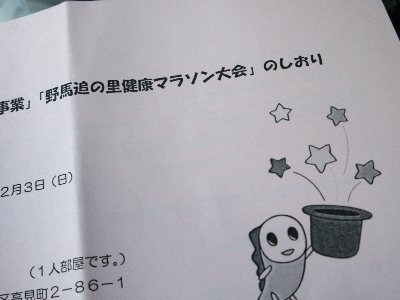 事業」「野馬追の里健康マラソン大会」のしおり
2月3日（日）
（1人部屋です。）
区高見町2－86－1